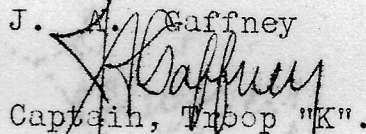 J. A. Gaffney
JAGaffney
Captain, Troop "K".